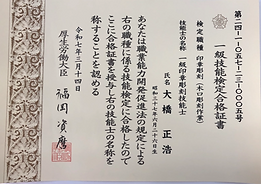 第二四-1-105七-二三-000五号
一級技能検定合格証書
検定職種 印章彫刻(木口彫刻作業)
技能士の名称 一級印章彫刻技能士
氏名 大橋正浩
昭和三十七年六月二十六日生
あなたは職業能力開発促進法の規定による
右の職種に係る技能検定に合格したので
ここに合格証書を授与し右の技能士の名称を
称することを認める
令和七年三月十四日
厚生労働大臣 福岡資麿